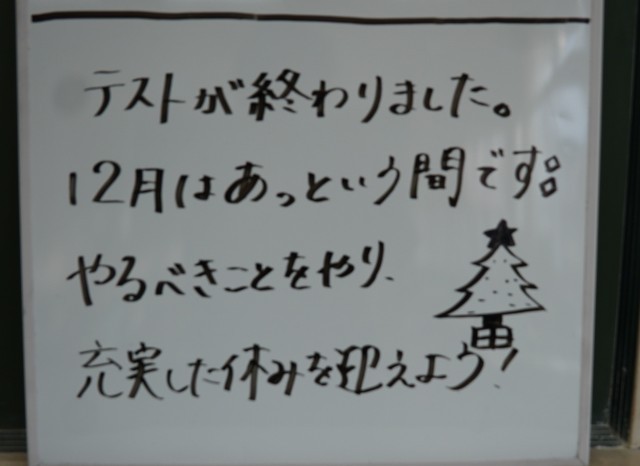 テストが終わりました。
12月はあっという間です。
やるべきことをやり、
充実した休みを迎えよう!